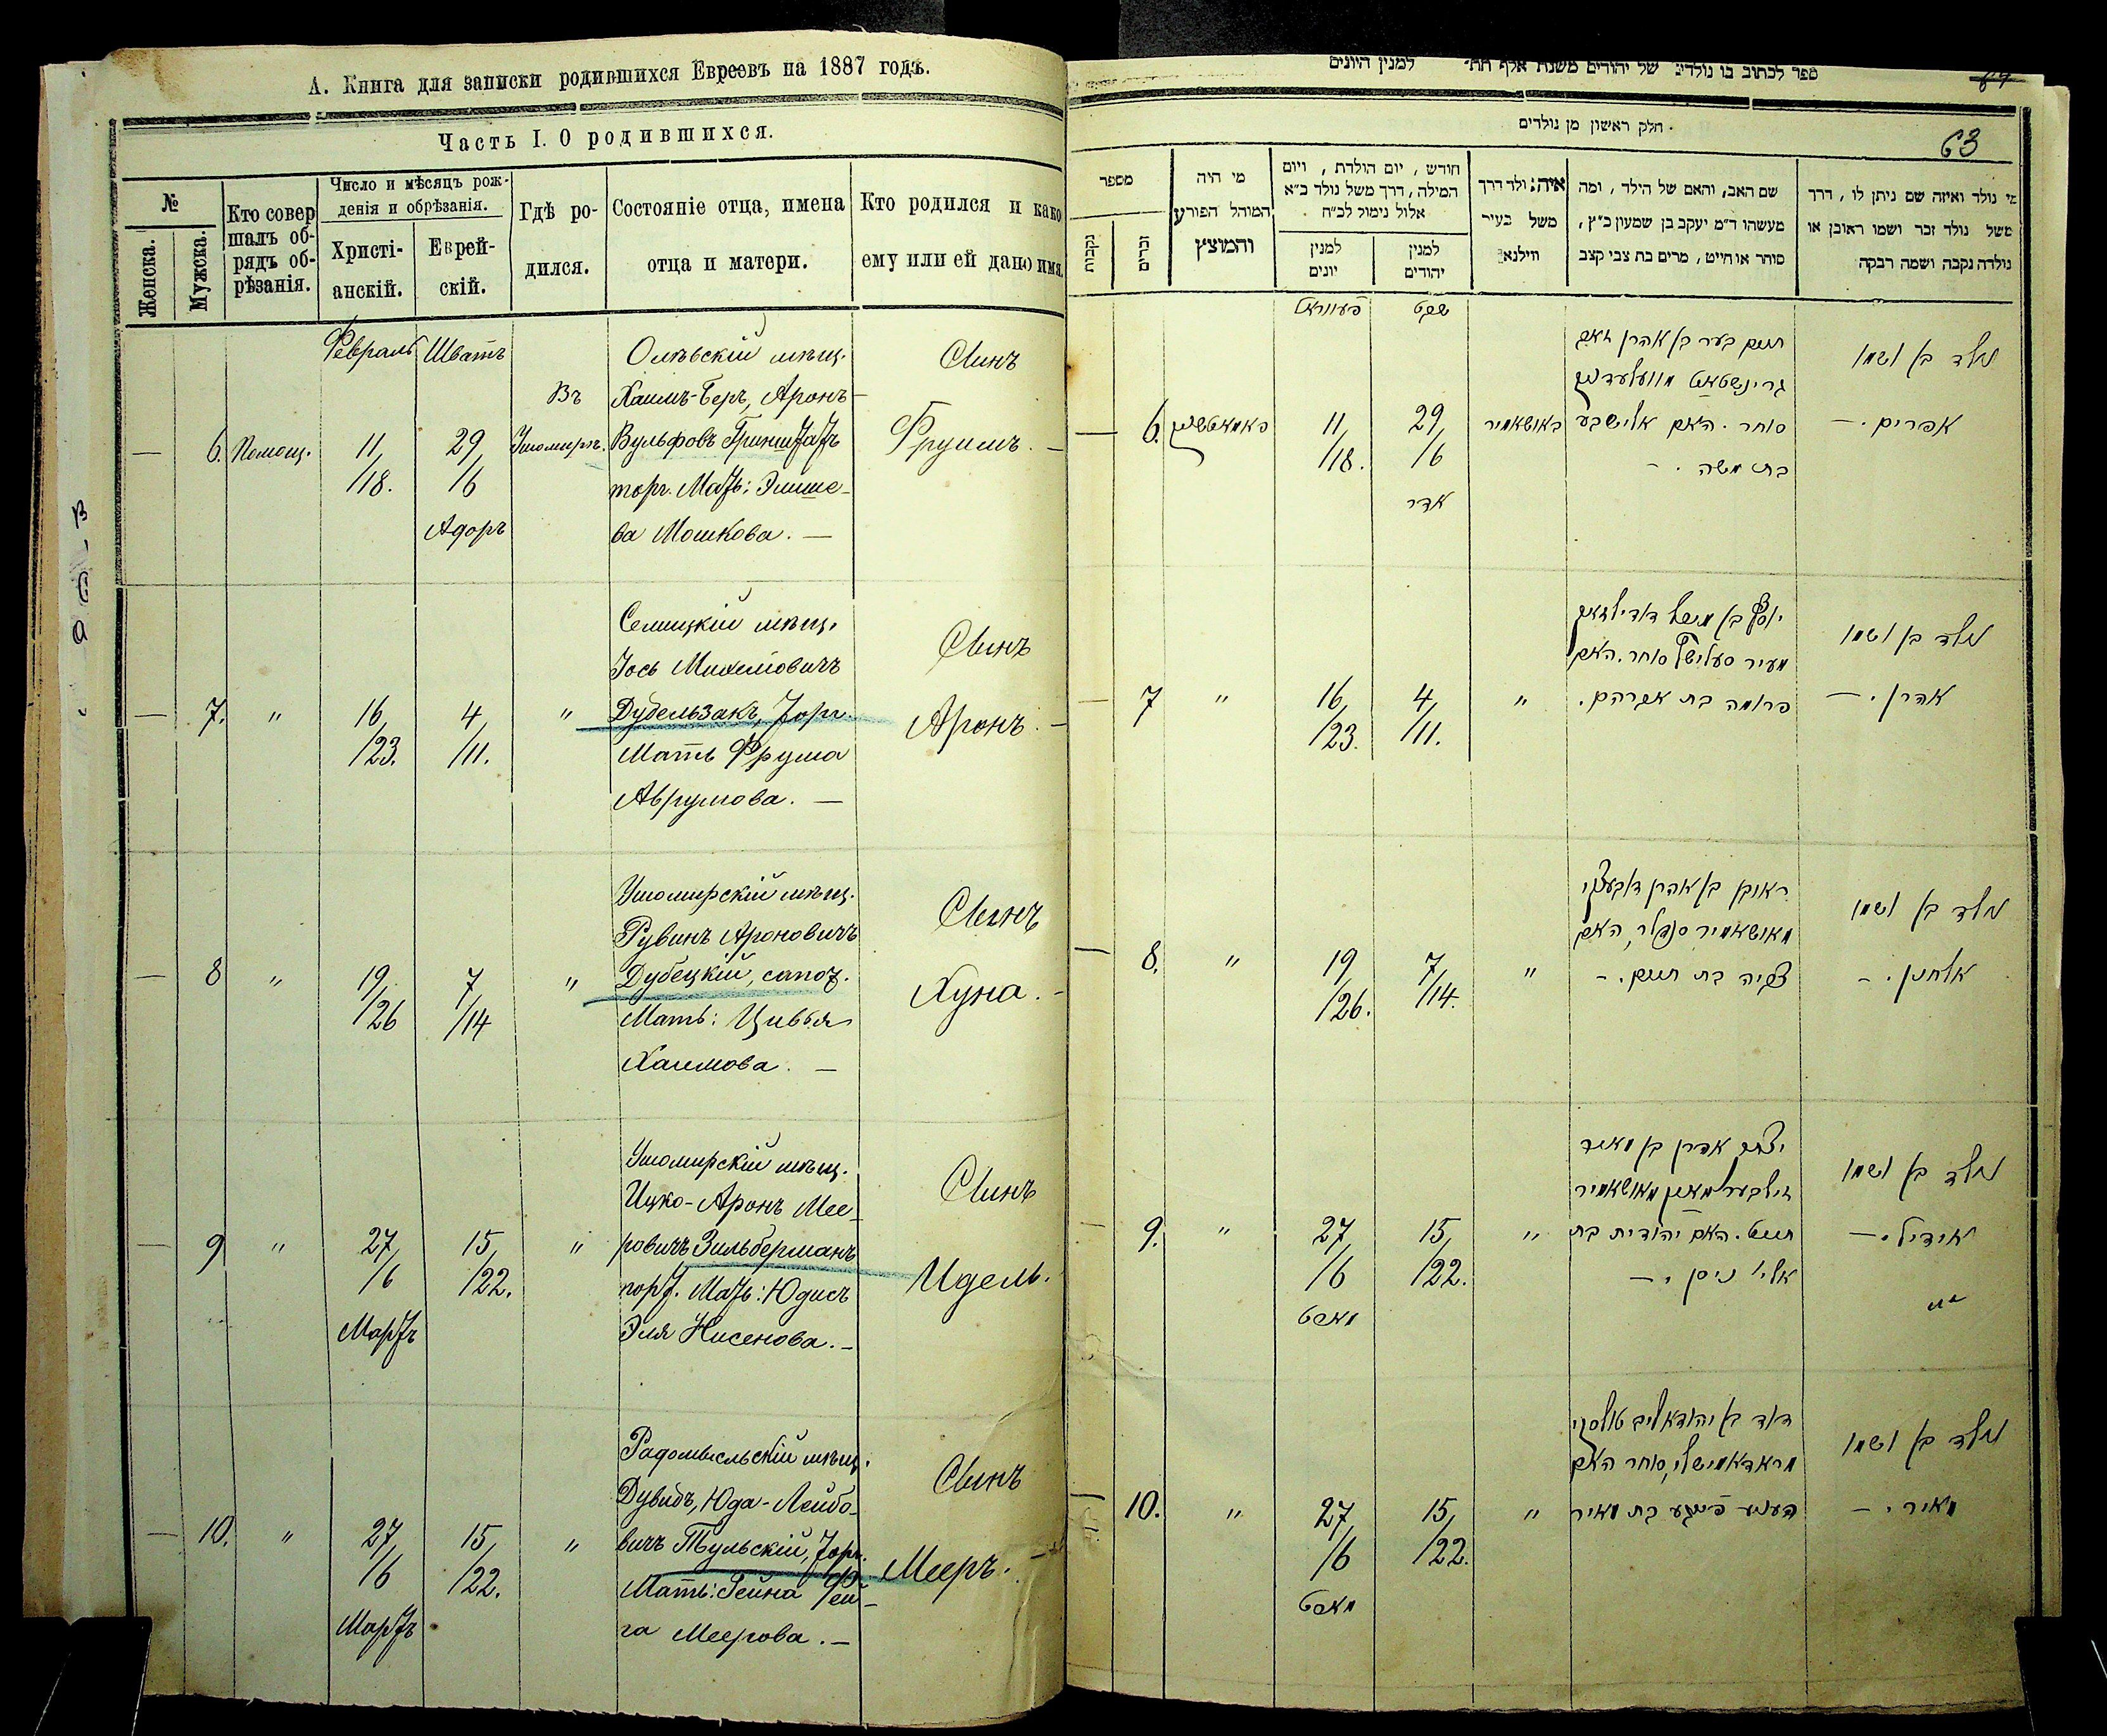 А. Книга для записки родившихся Евреевъ на 1887 годъ.
Часть I. О родившихся.
№
Женска.
Мужска.
Кто совер
шалъ об-
рядъ об-
рѣзанія.
Число и мѣсяцъ рож-
денія и обрѣзанія.
Христі-
анскій.
Еврей-
скій.
Гдѣ ро-
дился.
Состояніе отца, имена
отца и матери.
Кто родился и како
ему или ей дано имя.
Февраль Шватъ
— 6. Помощ. 11/18. 29/16
Адоръ
Въ
Ушомирѣ.
Олевскій мѣщ.
Хаимъ-Беръ, Аронъ-
Вульфовъ Гринштатъ
торг. Мать: Элише-
ва Мошкова. —
Сынъ
Фруимъ. —
— 7. " 16/23. 4/11. "
мѣщ.
Іось
Дубельзакъ, торг.
Мать Фрума
Аврумова. —
Сынъ
Аронъ. —
— 8 " 19/26 7/14 "
Ушомирскій мѣщ.
Рувинъ Ароновичъ
Дубецкій, сапож.
Мать: Цивья
Хаимова. —
Сынъ
Хуна. —
— 9 " 27/6 15/22. "
Мартъ
Ушомирскій мѣщ.
Ицко-Аронъ Мее-
ровичъ Зильберманъ
порт. Мать: Юдисъ
Эля Нисенова. —
Сынъ
Идель.
— 10. " 27/6 15/22. "
Мартъ
Радомысльскій мѣщ.
Дувидъ, Юда-Лейбо-
вичъ Тульскій, торг.
Мать: Гейна Фей-
га Меерова. —
Сынъ
Мееръ. —
ספר לכתוב בו נולדים של יהודים משנת אלף תת למנין היונים
63
חלק ראשון מן נולדים
מספר
נקבות
זכרים
מי היה
המוהל הפורע
והמוצץ
חודש, יום הולדת, ויום
המילה, דרך משל נולד כ״א
אלול נימול לכ״ח
למנין
יונים
למנין
יהודים
איה: ולד דרך
משל בעיר
ווילנא
שם האב, והאם של הילד, ומה
מעשהו ד״מ יעקב בן שמעון כ״ץ,
סוחר או חייט, מרים בת צבי קצב
מי נולד ואיזה שם ניתן לו, דרך
משל נולד זכר ושמו ראובן או
נולדה נקבה ושמה רבקה
פעווראל שבט
— 6. 11/18. 29/16
אדר
באושאמיר
חיים בער בן אהרן וואלף
גרינשטאט
סוחר. האם אלישבע
בת משה. —
נולד בן ושמו
אפרים. —
— 7 " 16/23. 4/11. "
סוחר. האם
פרומה בת אברהם.
נולד בן ושמו
אהרן. —
— 8. " 19/26. 7/14. "
ראובן בן אהרן דובעצקי
מאושאמיר סנדלר, האם
צביה בת חיים. —
נולד בן ושמו
אלחנן. —
— 9. " 27/6 15/22. "
מארט
יצחק אהרן בן מאיר
זילבערמאן מאושאמיר
חייט. האם יהודית בת
אלי' ניסן. —
נולד בן ושמו
אידיל. —
— 10. " 27/6 15/22. "
מארט
דוד בן יהודא ליב טולסקי
מראדאמישלי, סוחר האם
הענע פייגע בת מאיר
נולד בן ושמו
מאיר. —